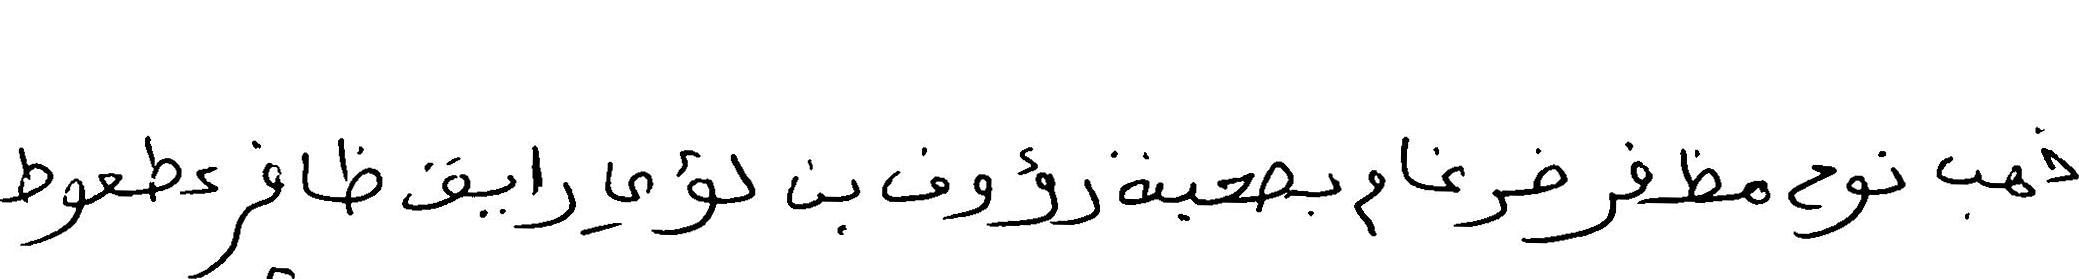 ذهب نوح مظفر ضرغام بصحبنة رؤوف بن لؤي رايق ظافر عطعوط